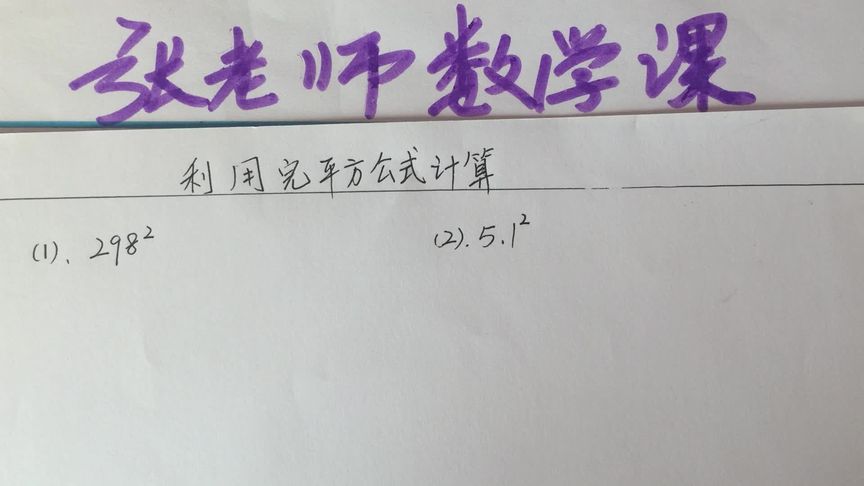 张老师数学课
利用完平方公式计算
(1)、298²
(2). 5.1²